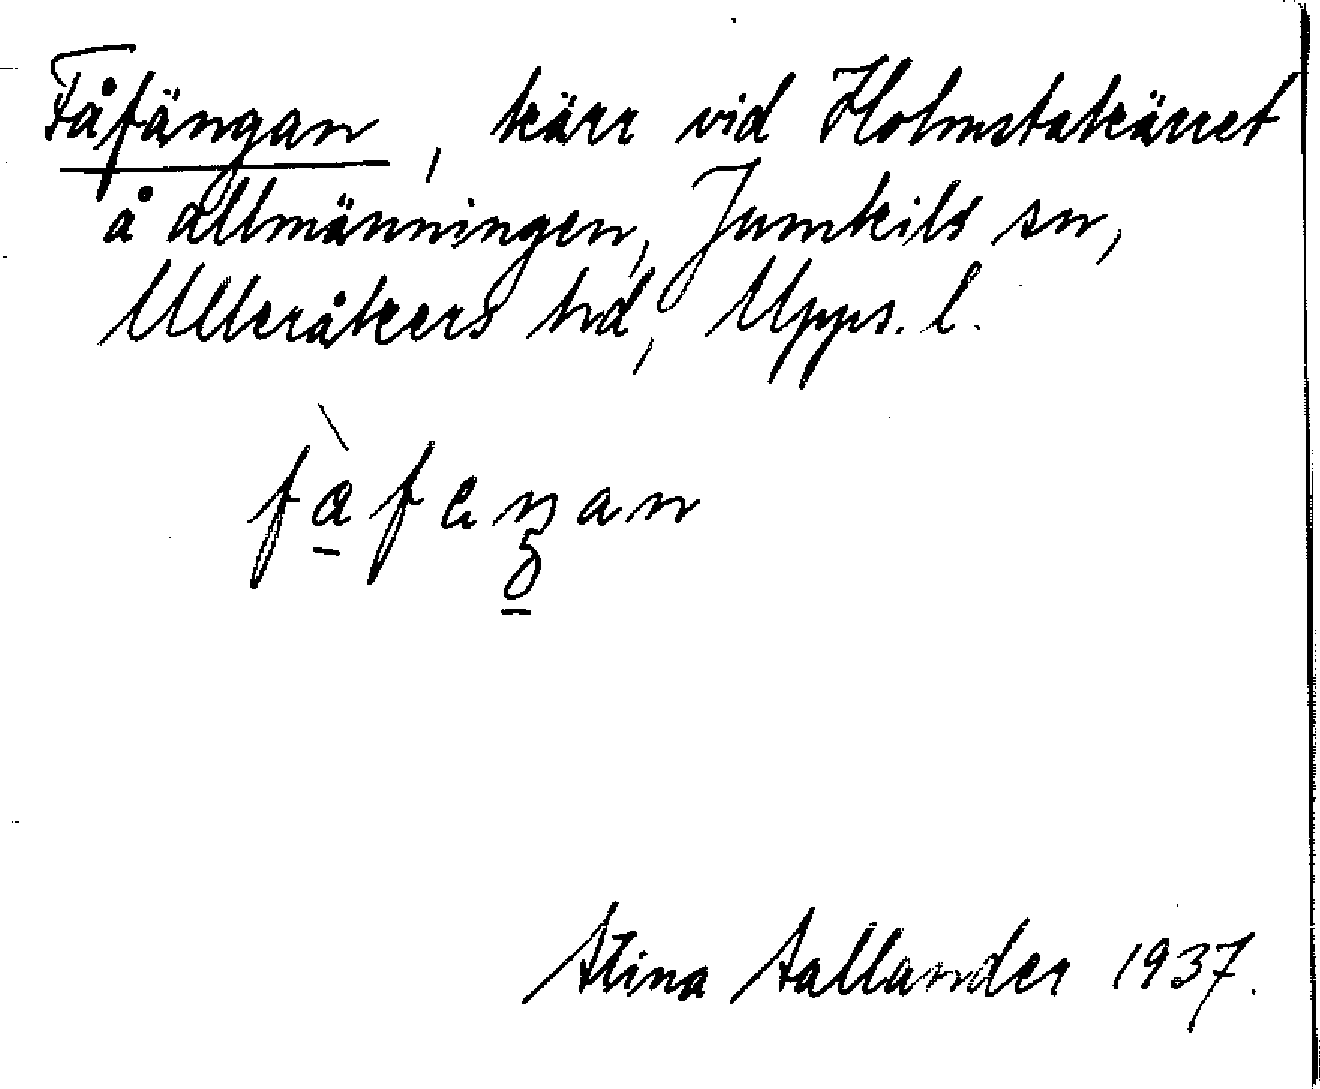 Fåfängan, kärr vid Holmstakärret
å allmänningen, Jumkils sn,
Ulleråkers hd, Upps. l.
Stina Sallander 1937.